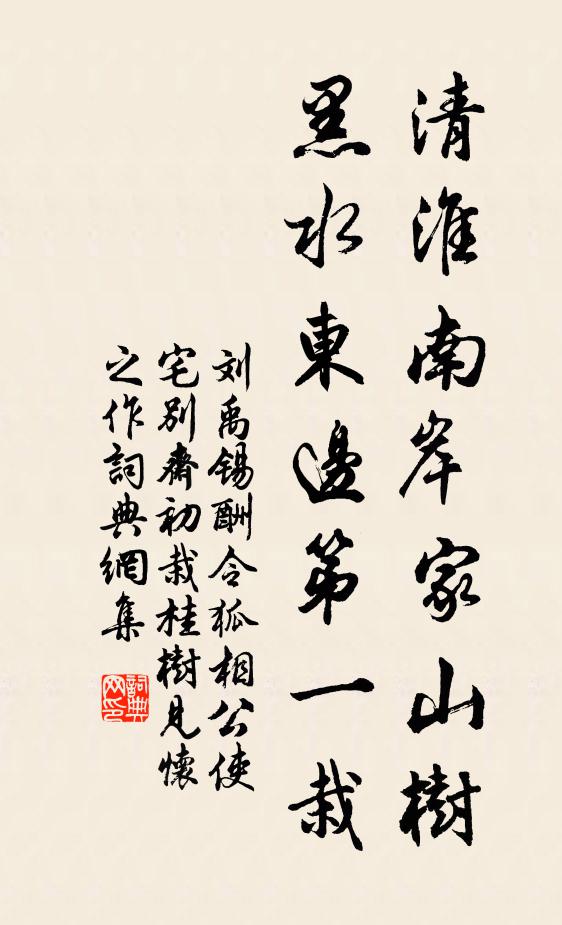 清淮南岸家山樹
黑水東邊第一栽
刘禹锡酬令狐相公使
宅别齋初栽桂樹見懷
之作詞典網集
詞典网印